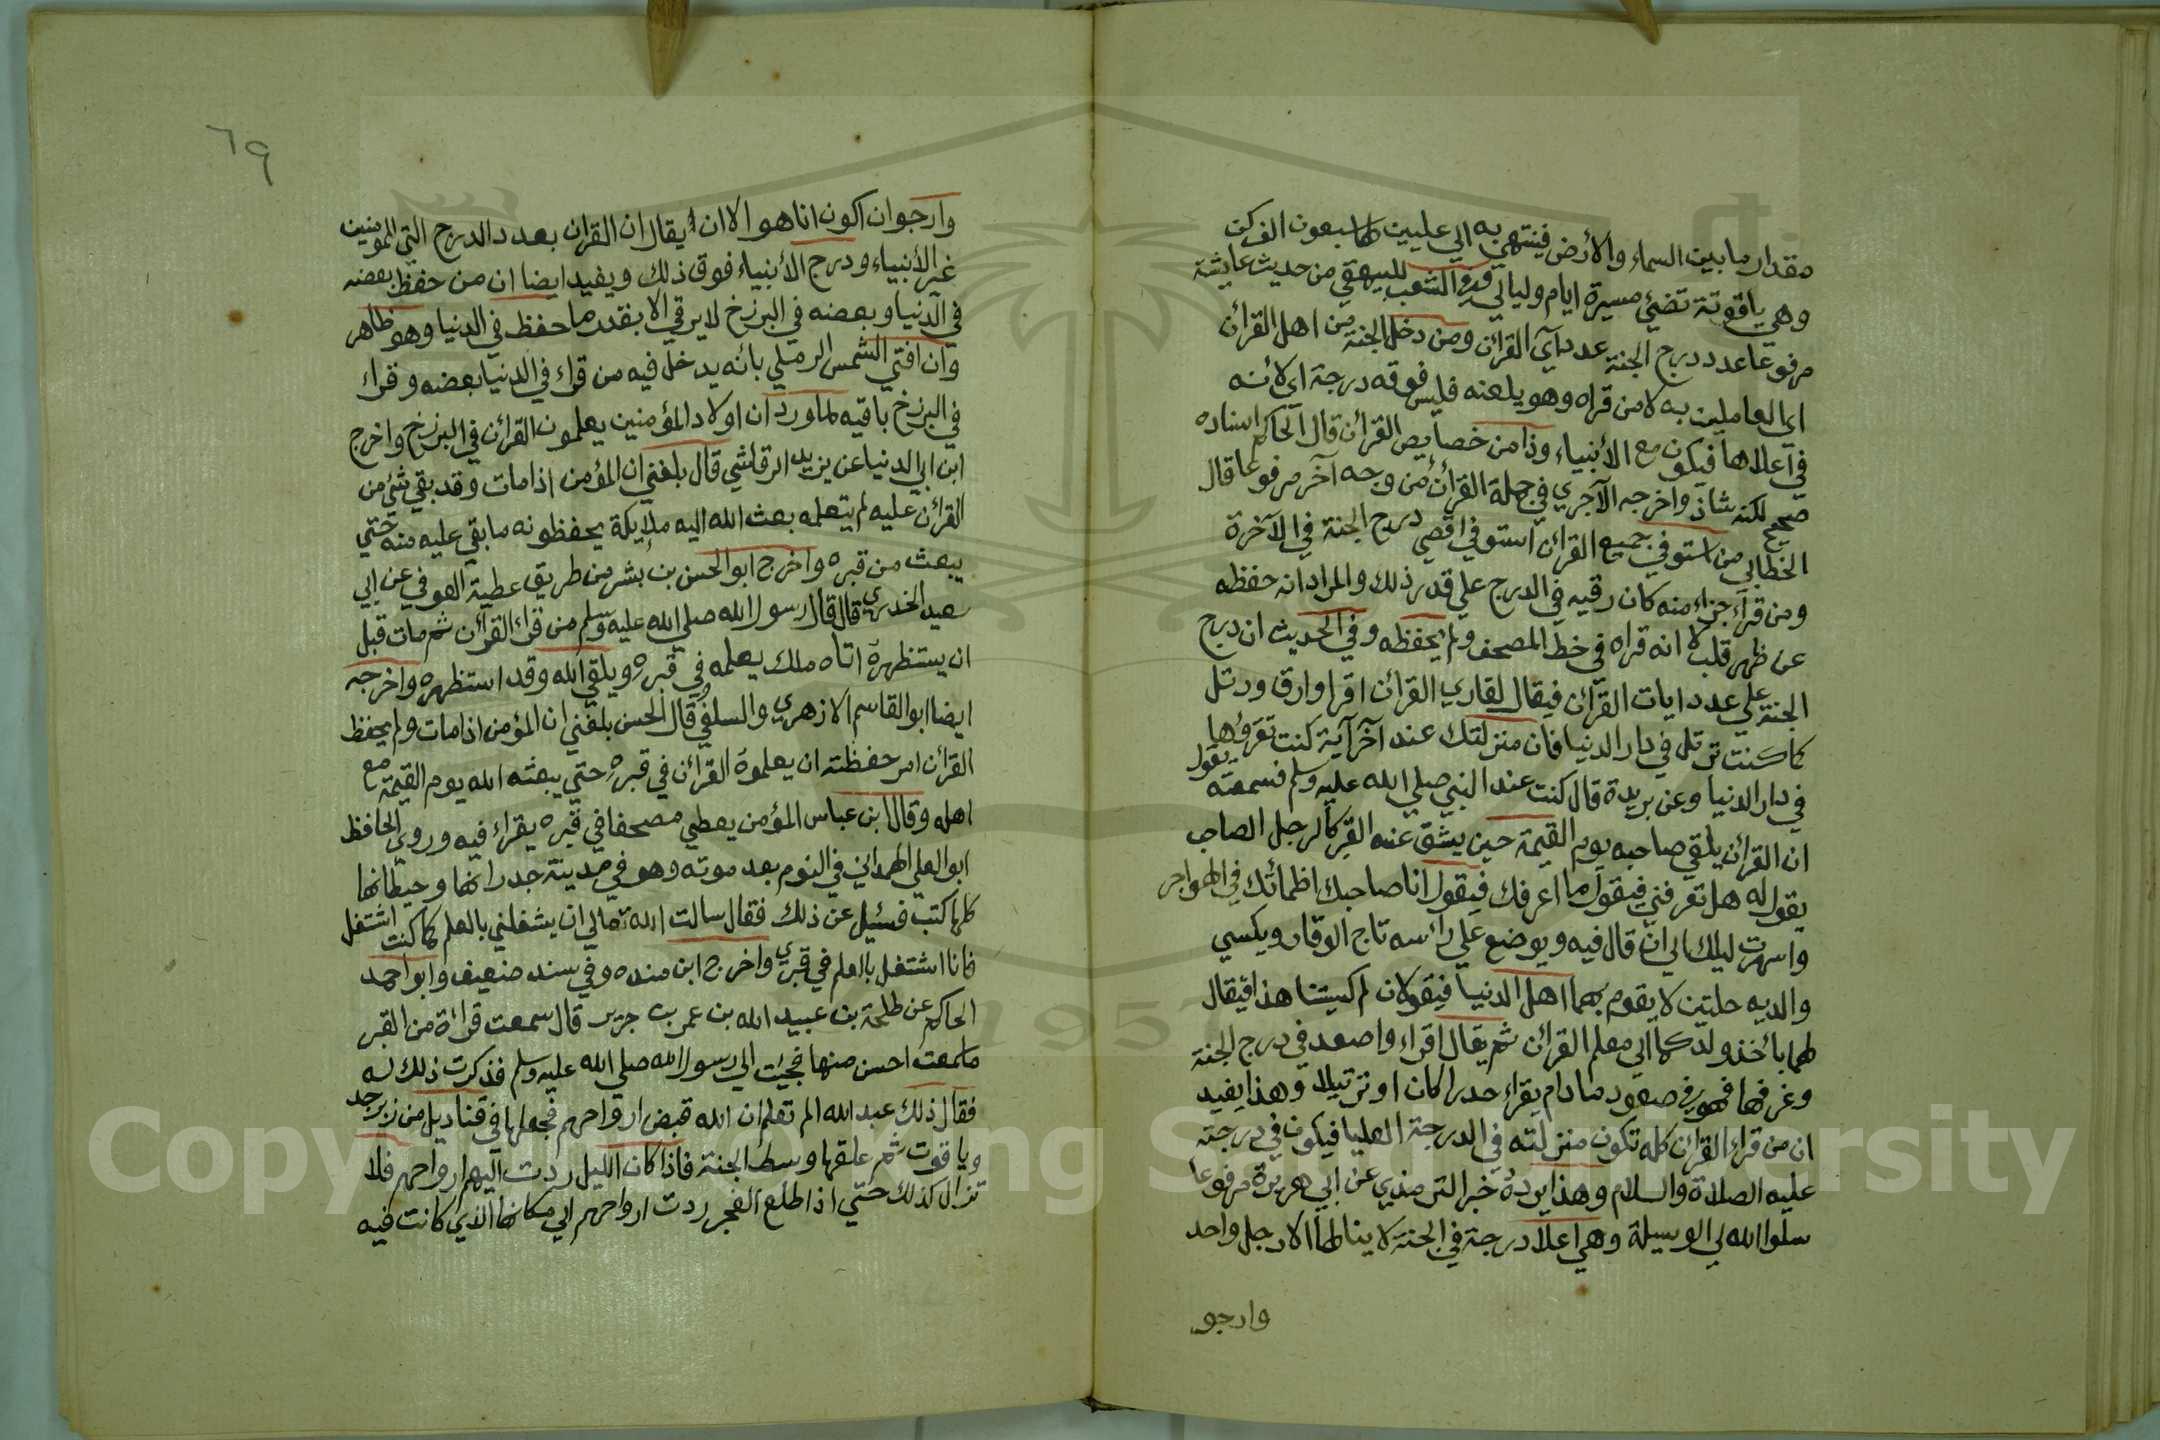 مقدار ما بين السماء والأرض فينتهي به الي عليين لها سبعون الف ركن
وهي ياقوتة تضئ مسيرة ايام وليالي وروا الشعب للبيهقي من حديث عايشة
مرفوعا عدد درج الجنة عدد آي القرائن ومن دخل الجنة من اهل القرائن
اي العاملين به لا من قراه وهو يلعنه فليس فوقه درجة اي لأنه
في اعلاها فيكون مع الأنبياء وذا من خصايص القرائن قال الحاكم اسناده
صحيح لكنه شاذ واخرجه الآجري في حملة القرائن من وجه آخر مرفوعا قال
الخطابي من استوفي جميع القرائن استوفي اقصي درج الجنة في الآخرة
ومن قرأ جزاء منه كان رقيه في الدرج علي قدر ذلك والمراد انه حفظه
عن ظهر قلب لا انه قراه في خط المصحف ولم يحفظه وفي الحديث ان درج
الجنة علي عدد ايات القرائن فيقال لقاري القرائن اقرا وارق ورتل
كما كنت ترتل في دار الدنيا فان منزلتك عند آخر آية كنت تقروها
في دار الدنيا وعن بريدة قال كنت عند النبي صلي الله عليه وسلم فسمعته يقول
ان القرائن يلقي صاحبه يوم القيمة حين يشق عنه القبر كالرجل الصاحب
يقول له هل تعرفني فيقول ما اعرفك فيقول انا صاحبك اظمائك في الهواجر
واسهرت ليلك الي ان قال فيه ويوضع علي رائسه تاج الوقار ويكسي
والديه حلتين لا يقوم بهما اهل الدنيا فيقولان لم كسيتنا هذا فيقال
لهما بأخذ ولدكما الي معلم القرائن ثم يقال اقراء واصعد في درج الجنة
وغرفها فهو في صعود ما دام يقراء حدرا كان او ترتيلا وهذا يفيد
ان من قراء القرائن كله تكون منزلته في الدرجة العليا فيكون في درجته
عليه الصلاة والسلام وهذا يرده خبر الترمذي عن ابي هريرة مرفوعا
سلوا الله لي الوسيلة وهي اعلا درجة في الجنة لا ينالها الا رجل واحد
وارجو
٦٩
وارجوان اكون انا هو الا ان يقال ان القران بعدد الدرج التي للمومنين
غير الأنبياء ودرج الأنبياء فوق ذلك ويفيد ايضا ان من حفظ بعضه
في الدنيا وبعضه في البرزخ لا يرقي الا بقدر ما حفظ في الدنيا وهو ظاهر
وان افتي الشمس الرملي بانه يدخل فيه من قراء في الدنيا بعضه وقراء
في البرزخ باقيه لما ورد ان اولاد المؤمنين يعلمون القرائن في البرزخ واخرج
ابن ابي الدنيا عن يزيد الرقاشي قال بلغني ان المؤمن اذا مات وقد بقي شئ من
القرائن عليه لم يتعلمه بعث الله اليه ملايكة يحفظونه ما بقي عليه منه حتي
يبعث من قبره واخرج ابو الحسن بن بشر من طريق عطية العوفي عن ابي
سعيد الخدري قال قال رسول الله صلي الله عليه وسلم من قراء القرائن ثم مات قبل
ان يستظهره اتاه ملك يعلمه في قبره ويلقي الله وقد استظهره واخرجه
ايضا ابو القاسم الازهري والسلفي قال الحسن بلغني ان المؤمن اذا مات ولم يحفظ
القرائن امر حفظته ان يعلموه القرائن في قبره حتي يبعثه الله يوم القيمة مع
اهله وقال ابن عباس المؤمن يعطي مصحفا في قبره يقراء فيه وروي الحافظ
ابو العلي الهمداني في النوم بعد موته وهو في مدينة جدرانها وحيطانها
كلها كتب فسئيل عن ذلك فقال سالت الله تعالي ان يشغلني بالعلم كما كنت اشتغل
فانا اشتغل بالعلم في قبري واخرج ابن منده وفي سنده ضعيف وابو احمد
الحاكم عن طلحة بن عبيد الله بن عمر بن جرير قال سمعت قرائة من القبر
ما سمعت احسن منها فجيئت الي رسول الله صلي الله عليه وسلم فذكرت ذلك له
فقال ذلك عبد الله الم تعلم ان الله قبض ارواحهم فجعلها في قناديل من زبرجد
وياقوت ثم علقها وسط الجنة فاذا كان الليل ردت اليهم ارواحهم فلا
تزال كذلك حتي اذا طلع الفجر ردت ارواحهم الي مكانها الذي كانت فيه